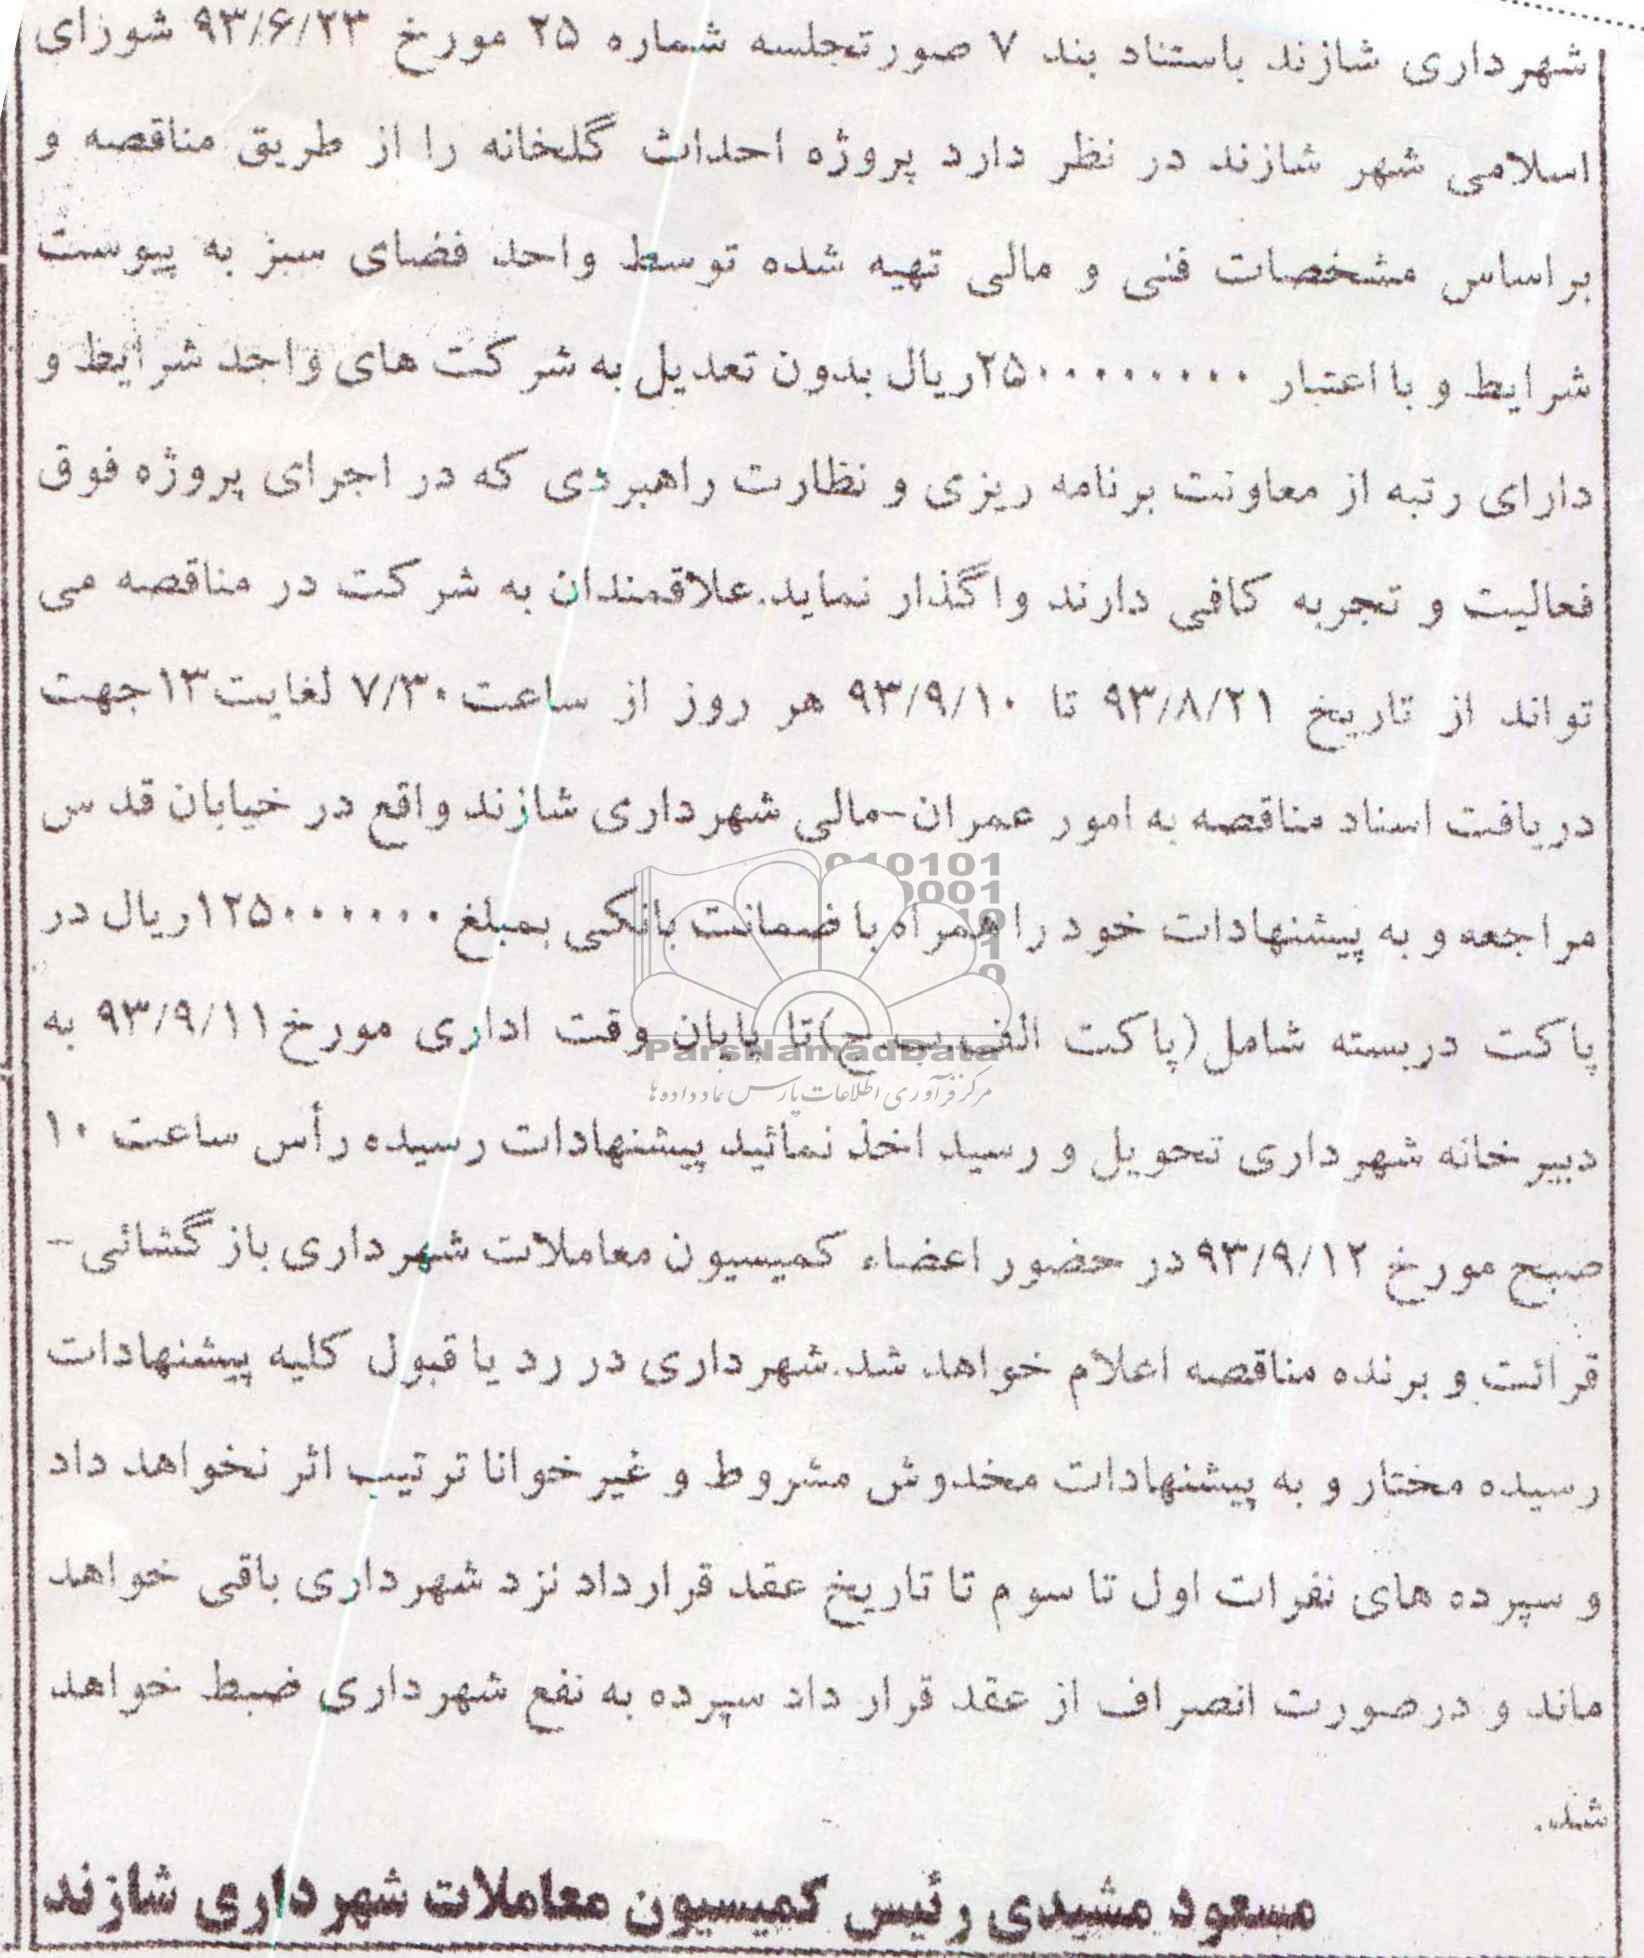 شهرداری شازند باستناد بند ۷ صورتجلسه شماره ۲۵ مورخ ۹۳/۶/۲۳ شورای
اسلامی شهر شازند در نظر دارد پروژه احداث گلخانه را از طریق مناقصه و
براساس مشخصات فنی و مالی تهیه شده توسط واحد فضای سبز به پیوست
شرایط و با اعتبار ۲۵۰۰۰۰۰۰۰۰ریال بدون تعدیل به شرکت های واجد شرایط و
دارای رتبه از معاونت برنامه ریزی و نظارت راهبردی که در اجرای پروژه فوق
فعالیت و تجربه کافی دارند واگذار نماید.علاقمندان به شرکت در مناقصه می
تواند از تاریخ ۹۳/۸/۲۱ تا ۹۳/۹/۱۰ هر روز از ساعت۷/۳۰ لغایت۱۳جهت
دریافت اسناد مناقصه به امور عمران-مالی شهرداری شازند واقع در خیابان قدس
مراجعه و به پیشنهادات خود را همراه با ضمانت بانکی بمبلغ ۱۲۵۰۰۰۰۰۰ریال در
پاکت دربسته شامل(پاکت الف.ب.ج)تا پایان وقت اداری مورخ۹۳/۹/۱۱ به
دبیرخانه شهرداری تحویل و رسید اخذ نمائید پیشنهادات رسیده رأس ساعت ۱۰
صبح مورخ ۹۳/۹/۱۲در حضور اعضاء کمیسیون معاملات شهرداری بازگشائی-
قرائت و برنده مناقصه اعلام خواهد شد.شهرداری در رد یا قبول کلیه پیشنهادات
رسیده مختار و به پیشنهادات مخدوش مشروط و غیرخوانا ترتیب اثر نخواهد داد
و سپرده های نفرات اول تا سوم تا تاریخ عقد قرارداد نزد شهرداری باقی خواهد
ماند و درصورت انصراف از عقد قرار داد سپرده به نفع شهرداری ضبط خواهد
شد.
مسعود مشیدی رئیس کمیسیون معاملات شهرداری شازند
ParsNamadData
مرکز فرآوری اطلاعات پارس نماد داده ها